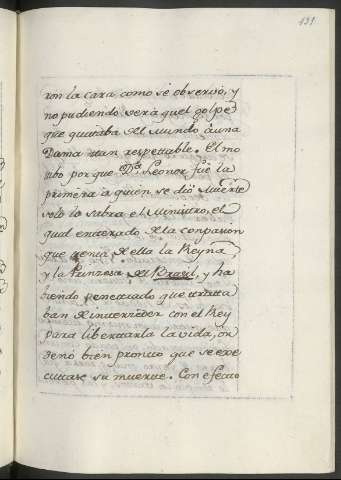 131
ron la cara, como se observó, y
no pudiendo ver aquel golpe
que quitaba del mundo á una
Dama tan respettable. El mo
tibo por que D.ª Leonor fué la
primera á quien se dió Muerte
solo lo sabra el Ministro, el
qual enterado de la conpasion
que tenia de ella la Reyna,
y la Princesa del Brasil, y ha
biendo penetrado que tratta
ban de interceder con el Rey
para libertarla la vida, or
denó bien pronto que se exe
cutase su muerte. Con efecto